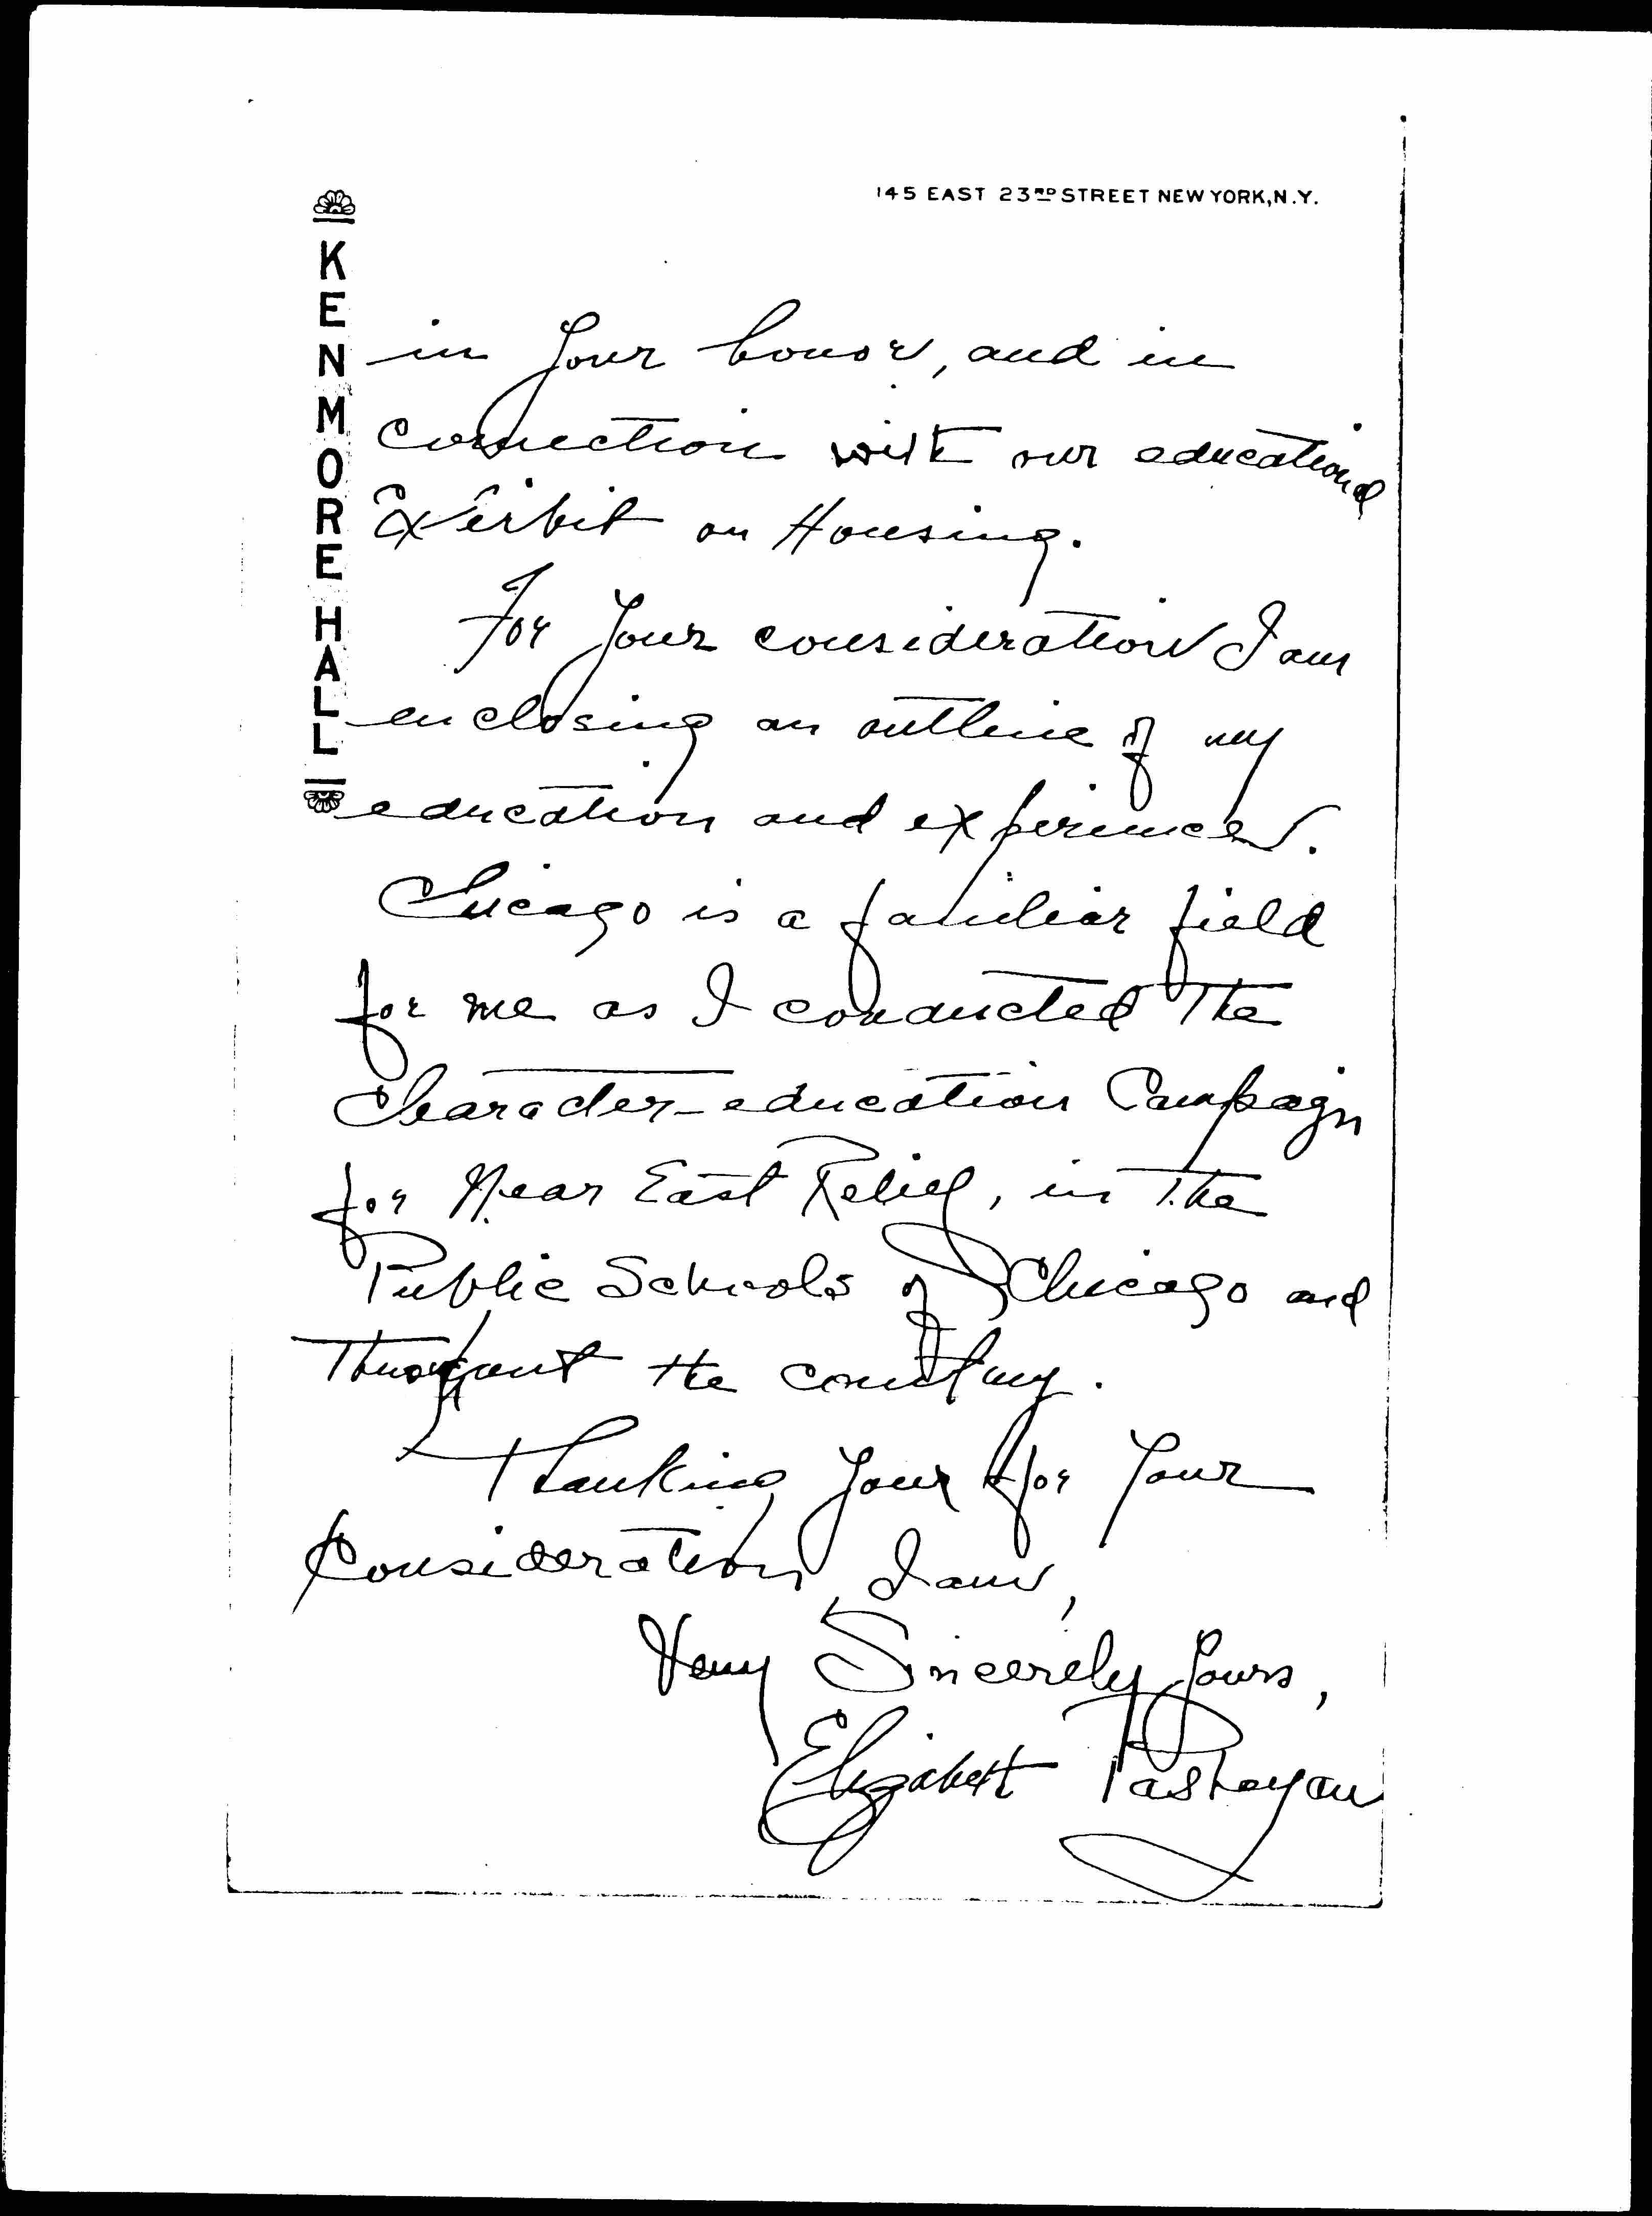 145 EAST 23RD STREET NEW YORK, N.Y.
KENMORE HALL
in your honor, and in
connection with our educational
Exhibit on Housing.
For your consideration I am
enclosing an outline of my
education and experiences.
Chicago is a familiar field
for me as I conducted the
Character-education Campaign
for Near East Relief, in the
Public Schools of Chicago and
Throughout the country.
Thanking your for your
Consideration, I am,
Very Sincerely yours,
Elizabeth